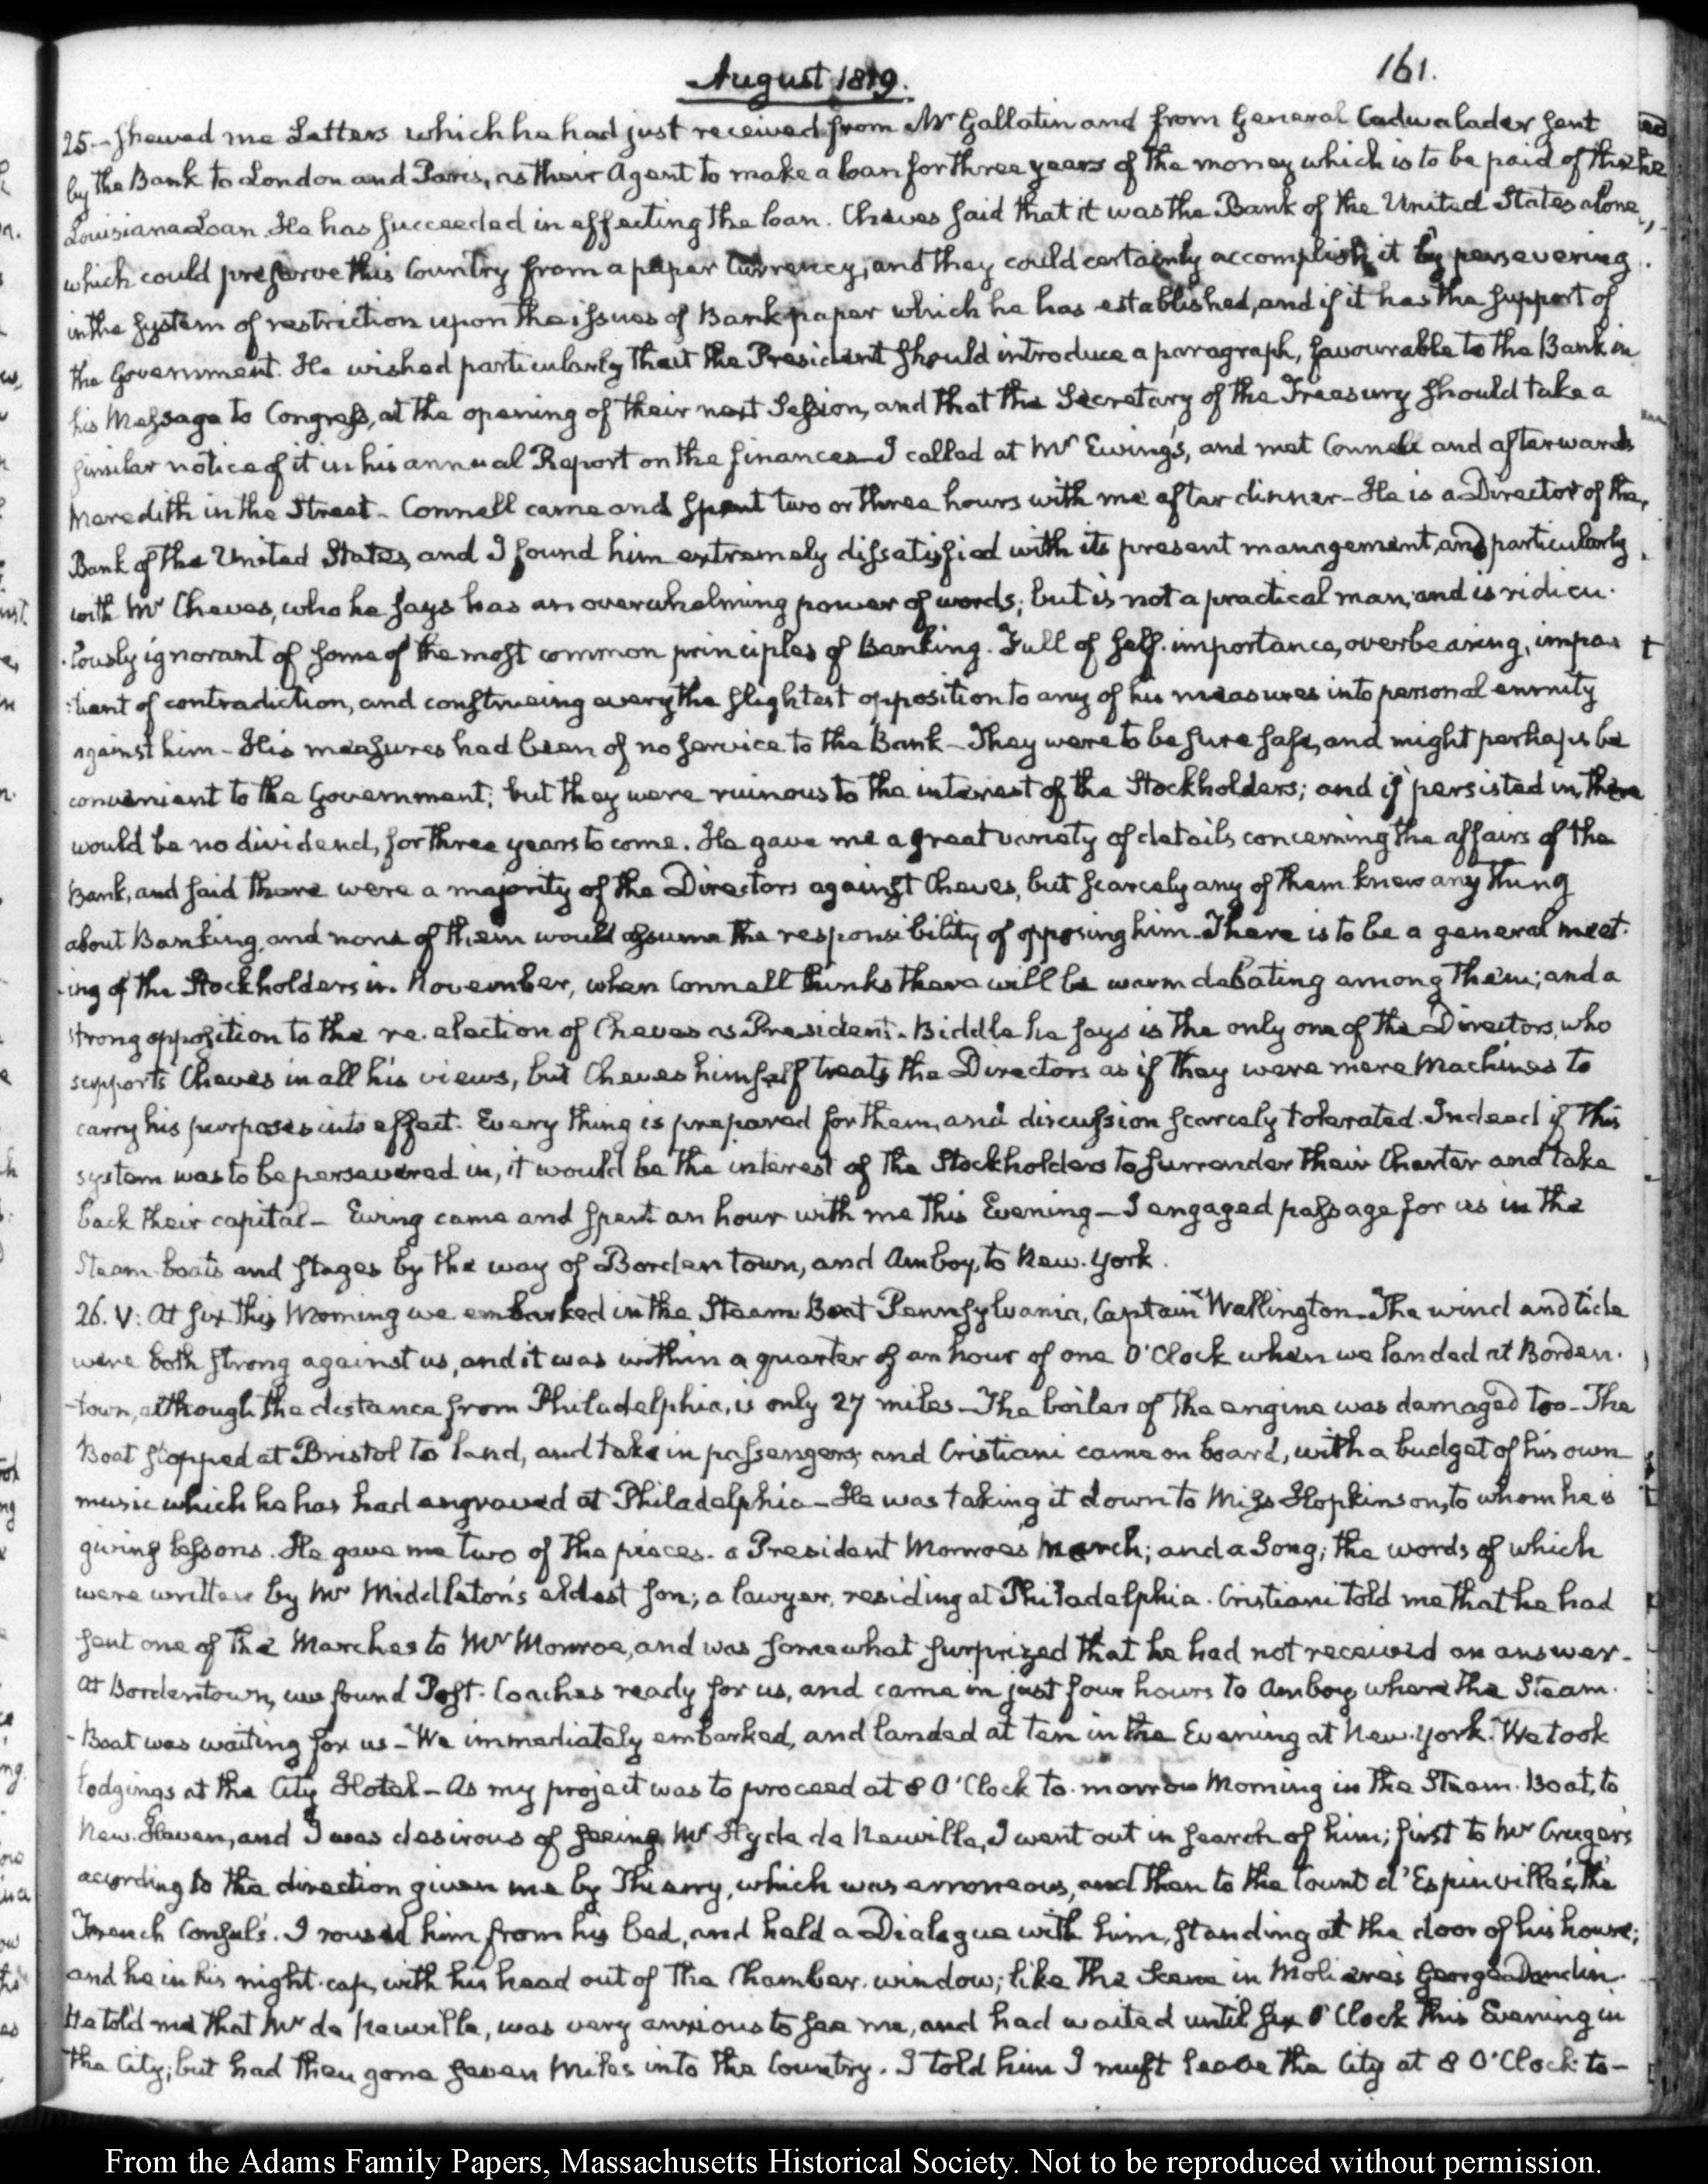 August 1819.
161.
25 — shewed me Letters which he had just received from Mr Gallatin and from General Cadwalader sent
by the Bank to London and Paris, as their Agent to make a loan for three years of the money which is to be paid of the
Louisiana Loan. He has succeeded in effecting the loan. Cheves said that it was the Bank of the United States alone,
which could preserve this Country from a paper Currency, and they could certainly accomplish it by persevering
in the system of restriction upon the issues of Bank paper which he has established, and if it has the support of
the Government. He wished particularly that the President should introduce a paragraph, favourable to the Bank in
his Message to Congress, at the opening of their next Session, and that the Secretary of the Treasury should take a
similar notice of it in his annual Report on the finances — I called at Mr Ewing's, and met Connell and afterwards
Meredith in the Street — Connell came and spent two or three hours with me after dinner — He is a Director of the
Bank of the United States, and I found him extremely dissatisfied with its present management, and particularly
with Mr Cheves, who he says has an overwhelming power of words; but is not a practical man, and is ridicu-
-lously ignorant of some of the most common principles of Banking. Full of self-importance, overbearing, impa-
-tient of contradiction, and construeing every the slightest opposition to any of his measures into personal enmity
against him — His measures had been of no service to the Bank — They were to be sure safe, and might perhaps be
convenient to the Government; but they were ruinous to the interest of the Stockholders; and if persisted in, there
would be no dividend, for three years to come. He gave me a great variety of details concerning the affairs of the
Bank, and said there were a majority of the Directors against Cheves, but scarcely any of them knew any thing
about Banking, and none of them would assume the responsibility of opposing him. There is to be a general meet-
-ing of the Stockholders in November, when Connell thinks there will be warm debating among them; and a
strong opposition to the re-election of Cheves as President. Biddle he says is the only one of the Directors, who
supports Cheves in all his views, but Cheves himself treats the Directors as if they were mere Machines to
carry his purposes into effect. Every thing is prepared for them, and discussion scarcely tolerated. Indeed if this
system was to be persevered in, it would be the interest of the Stockholders to surrender their Charter and take
back their capital — Ewing came and spent an hour with me this Evening — I engaged passage for us in the
Steam-boats and stages by the way of Bordentown, and Amboy, to New-York.
26. V: At six this Morning we embarked in the Steam Boat Pennsylvania, Captain Wallington — The wind and tide
were both strong against us, and it was within a quarter of an hour of one O'Clock when we landed at Borden-
-town, although the distance from Philadelphia, is only 27 miles — The boiler of the engine was damaged too — The
Boat stopped at Bristol to land, and take in passengers, and Cristiani came on board, with a budget of his own
music which he has had engraved at Philadelphia — He was taking it down to Miss Hopkinson, to whom he is
giving lessons. He gave me two of the pieces — a President Monroe's March; and a Song; the words of which
were written by Mr Middleton's eldest son; a lawyer, residing at Philadelphia. Cristiani told me that he had
sent one of the Marches to Mr Monroe, and was somewhat surprized that he had not received an answer —
At Bordentown, we found Post-Coaches ready for us, and came in just four hours to Amboy where the Steam-
-Boat was waiting for us — We immediately embarked, and landed at ten in the Evening at New-York. We took
lodgings at the City Hotel — As my project was to proceed at 8 O'Clock to-morrow Morning in the Steam-Boat, to
New-Haven, and I was desirous of seeing Mr Hyde de Neuville, I went out in search of him; first to Mr Cruger's
according to the direction given me by Thierry, which was erroneous, and then to the Count d'Espinville's, the
French Consul's. I roused him from his bed, and held a Dialogue with him, standing at the door of his house;
and he in his night-cap, with his head out of the Chamber-window; like the Scene in Moliere's George Dandin.
He told me that Mr de Neuville, was very anxious to see me, and had waited until six O'Clock this Evening in
the City; but had then gone seven Miles into the Country. I told him I must leave the City at 8 O'Clock to-
From the Adams Family Papers, Massachusetts Historical Society. Not to be reproduced without permission.